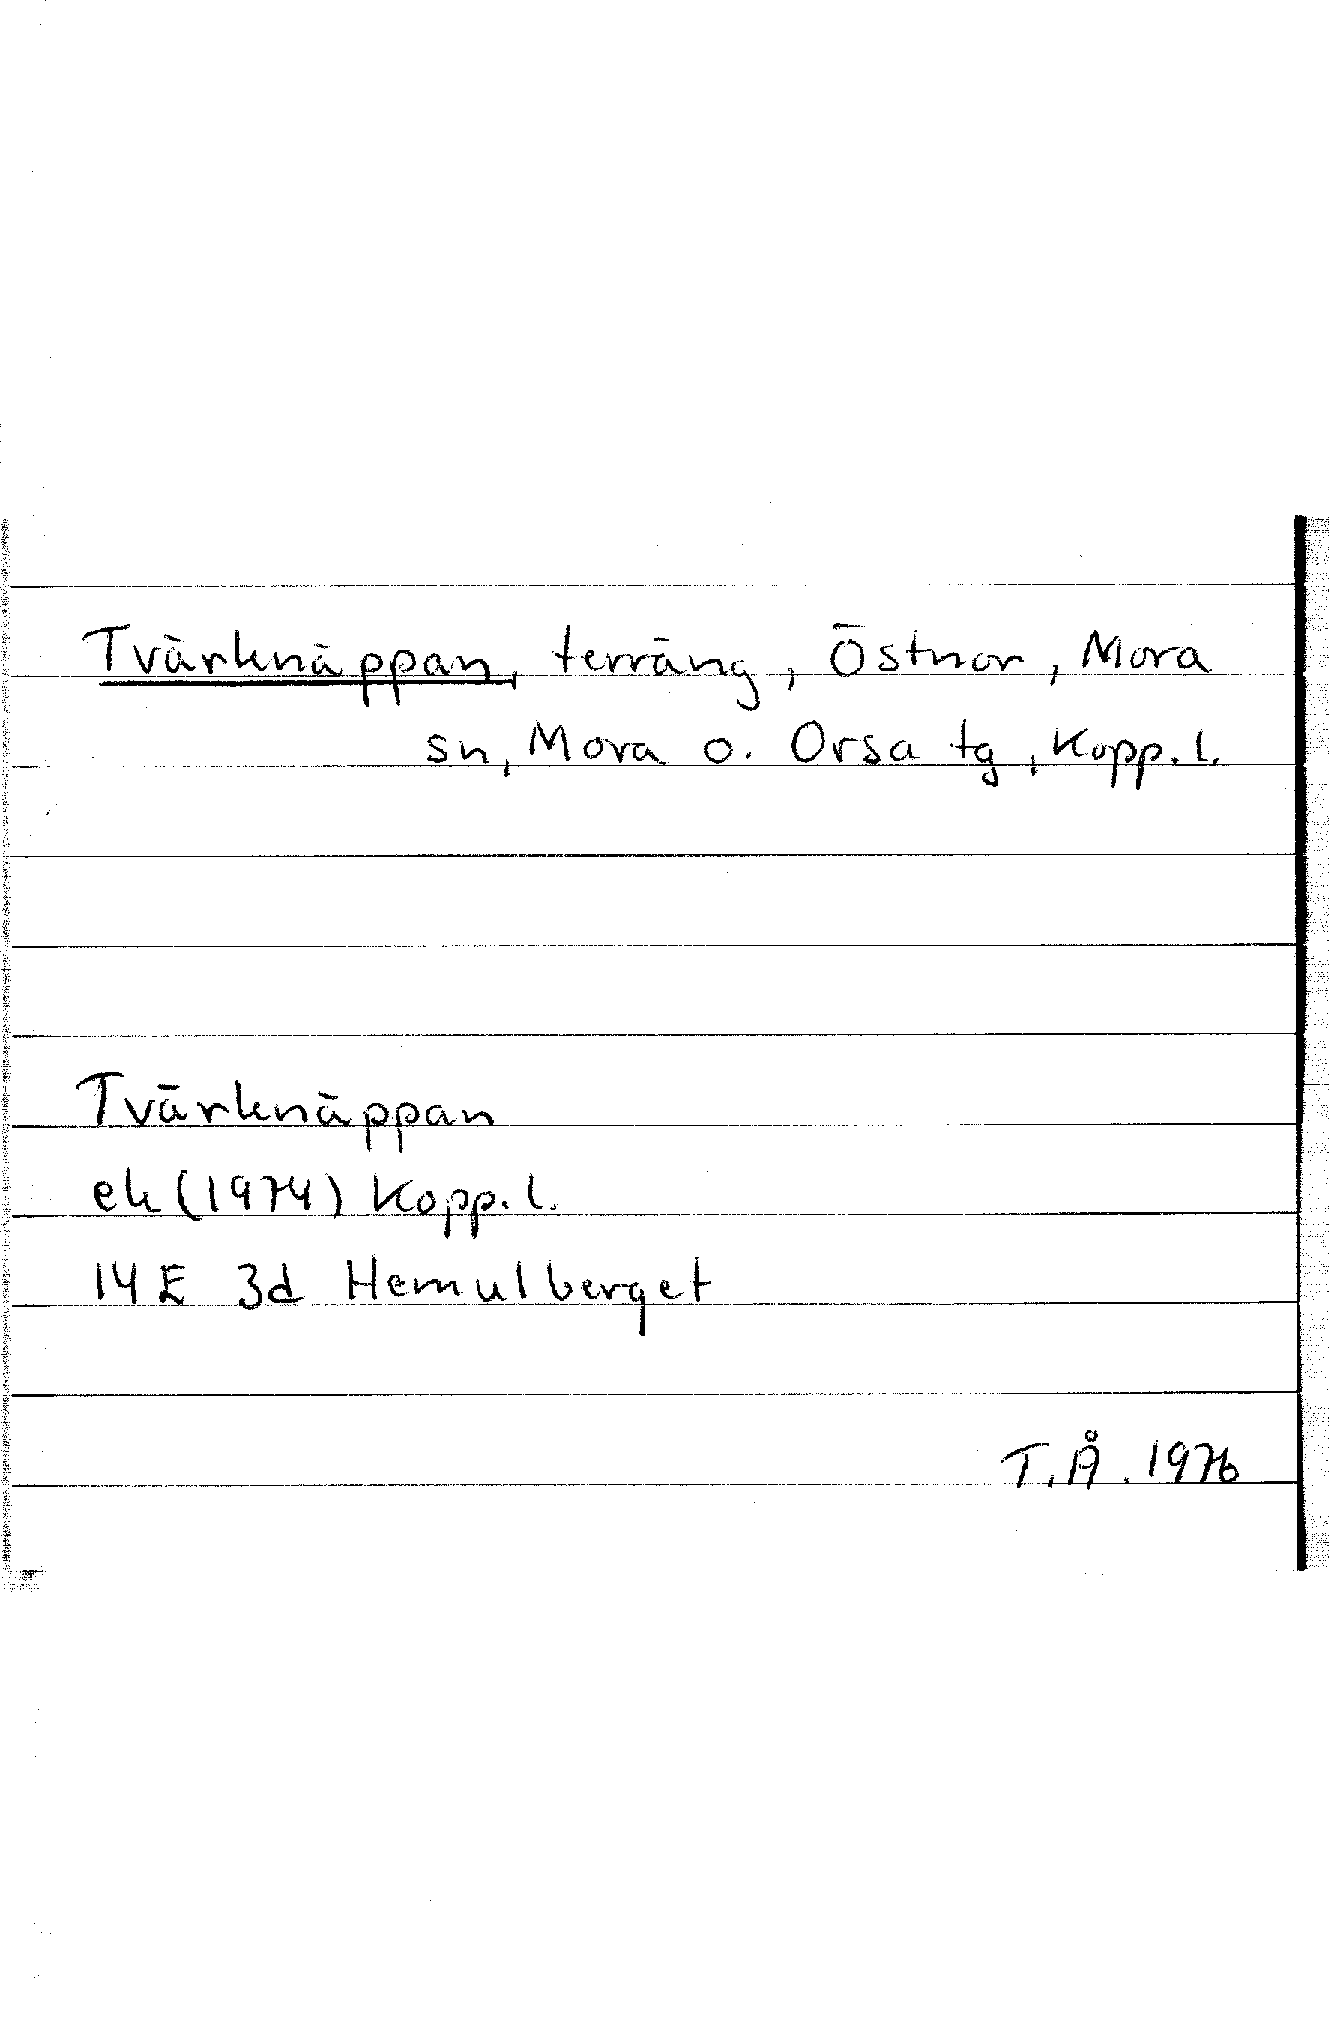 Tvärknäppan, terräng, Östnor, Mora
sn, Mora o. Orsa tg, Kopp. l.
Tvärknäppan
ek (1974) Kopp. l.
14 E 3d Hemulberget
T.Å. 1976